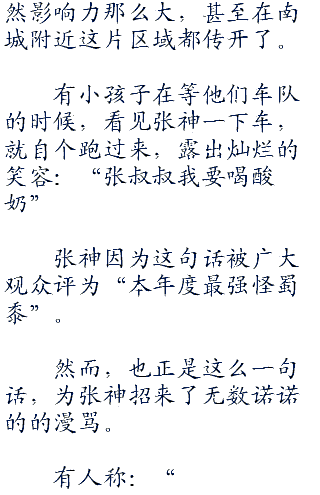 然影响力那么大，甚至在南
城附近这片区域都传开了。
有小孩子在等他们车队
的时候，看见张神一下车，
就自个跑过来，露出灿烂的
笑容：“张叔叔我要喝酸
奶”
张神因为这句话被广大
观众评为“本年度最强怪蜀
黍”。
然而，也正是这么一句
话，为张神招来了无数诺诺
的的漫骂。
有人称：“